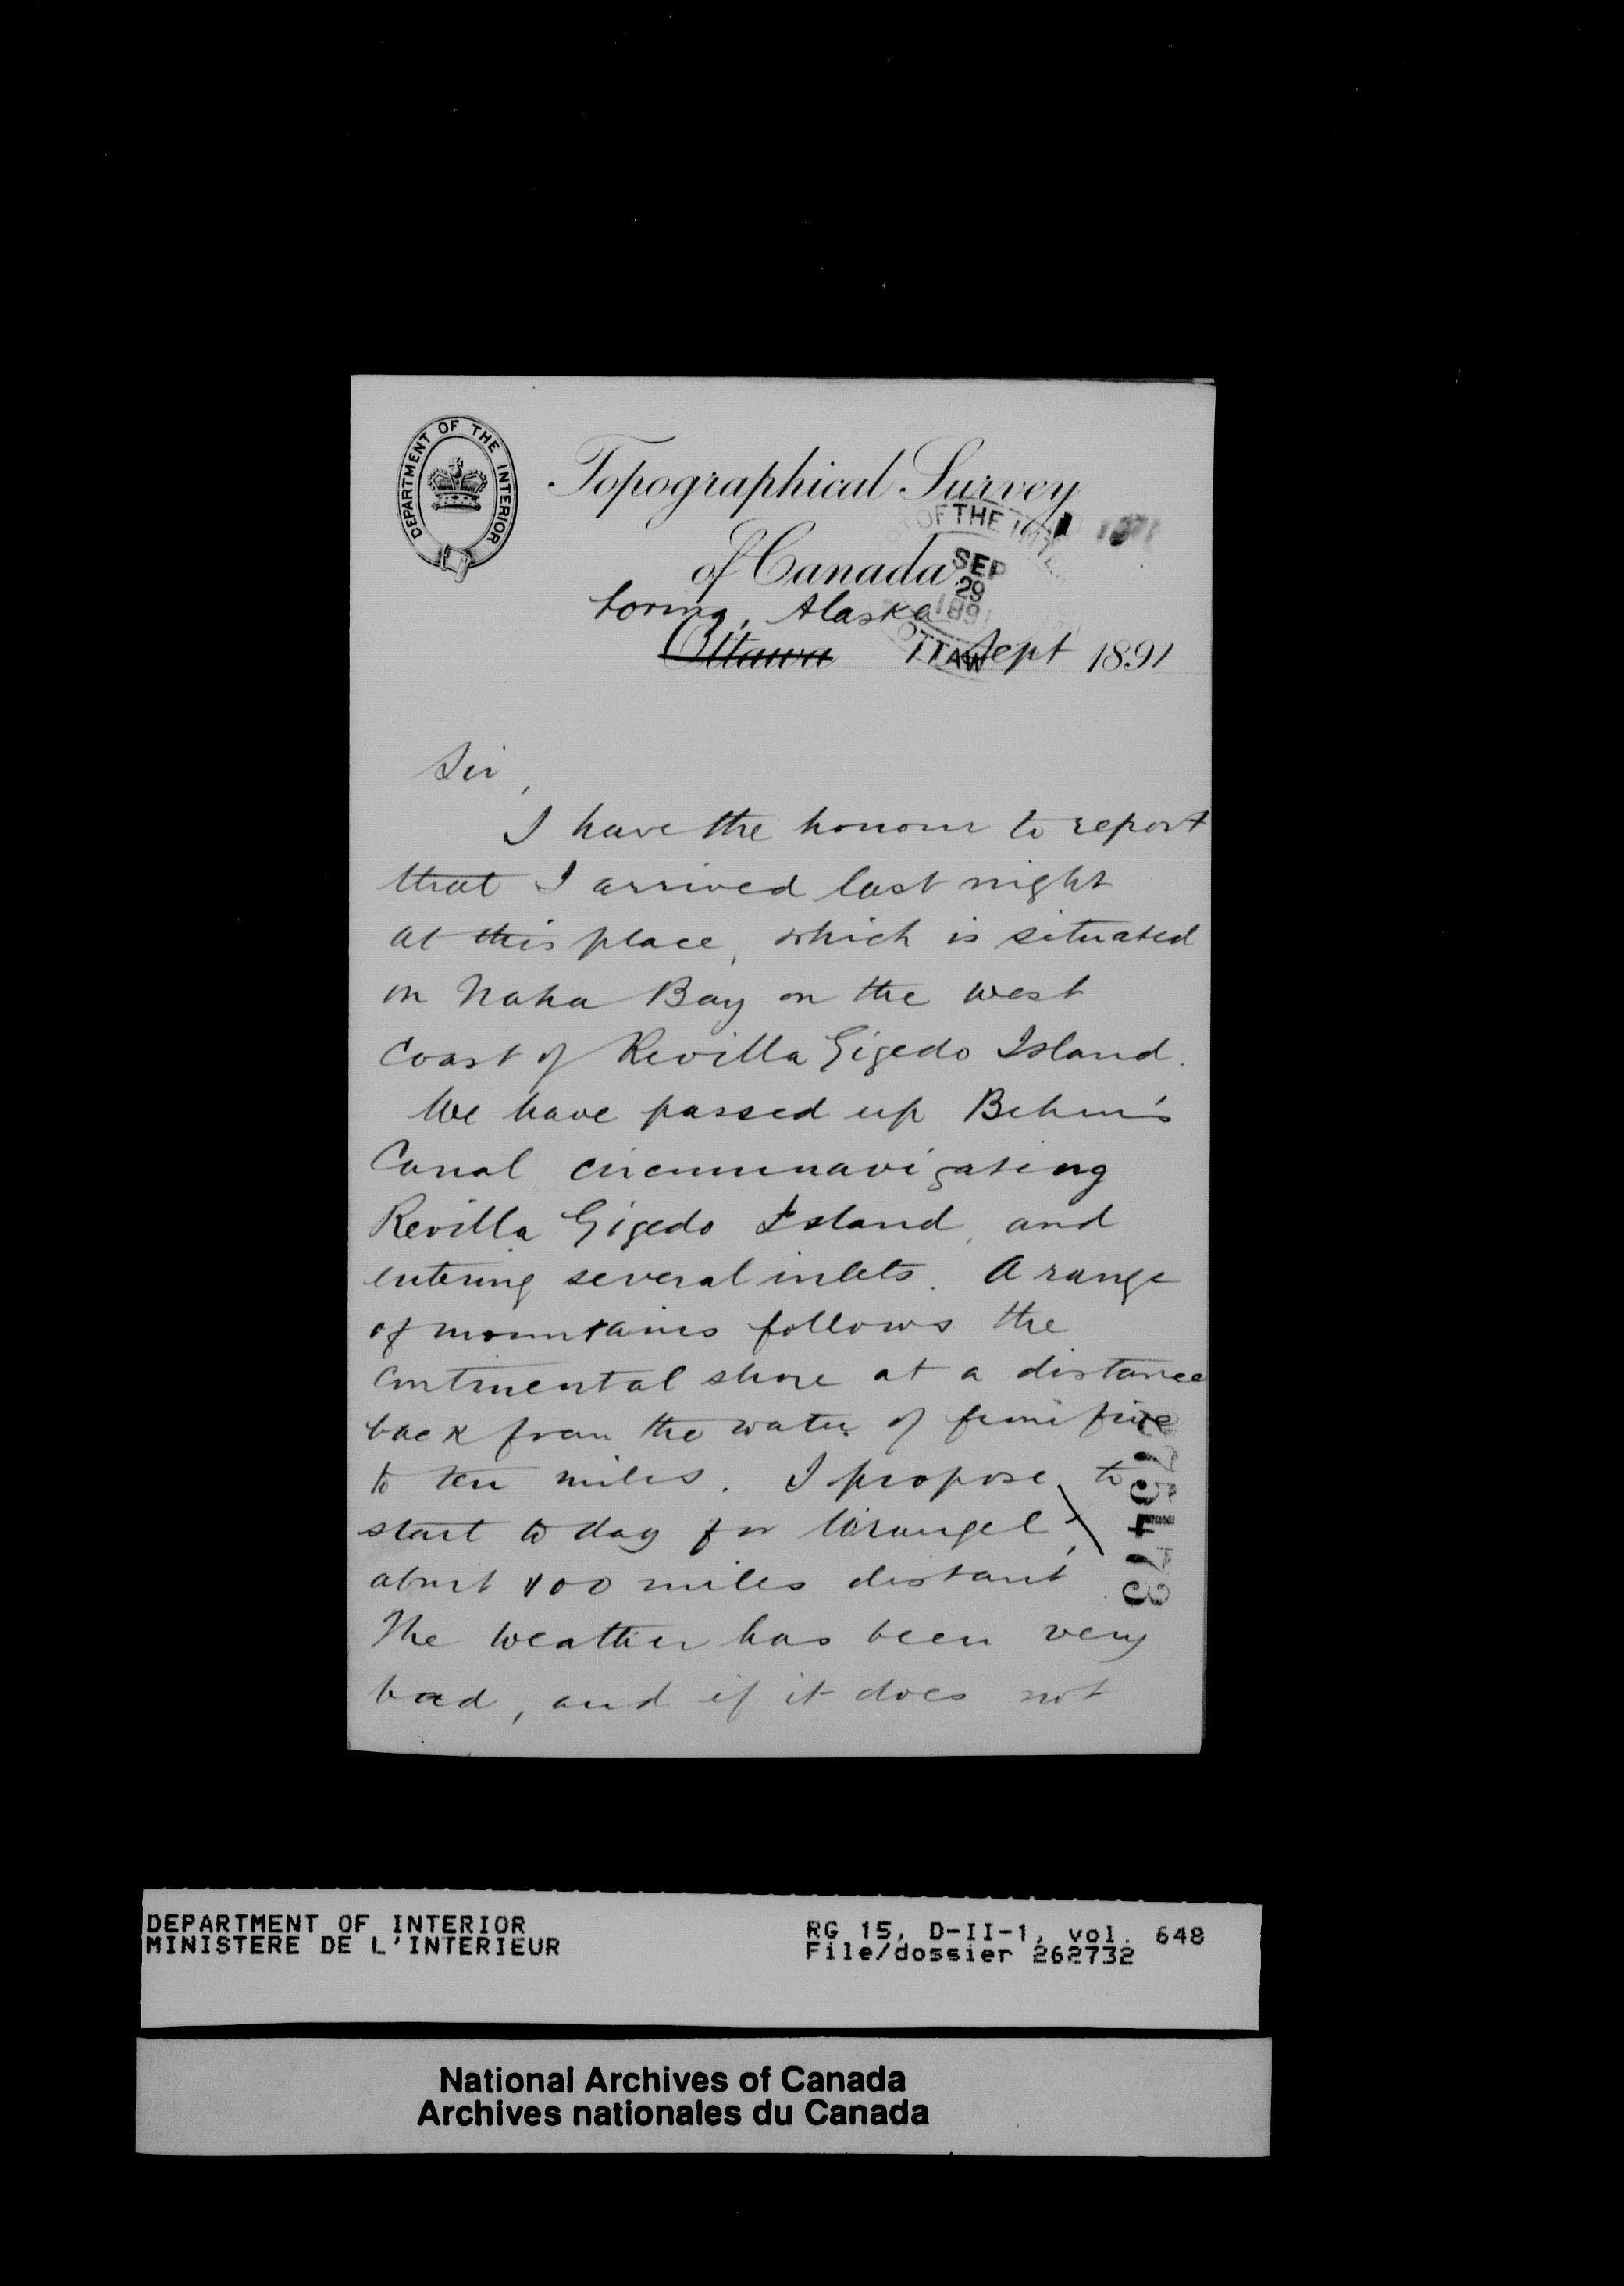 DEPARTMENT OF THE INTERIOR
Topographical Survey
of Canada
DEPT OF THE INTERIOR
SEP
29
1891
OTTAWA
Loring, Alaska
Ottawa Sept 1891
Sir,
I have the honour to report
that I arrived last night
at this place, which is situated
on Naha Bay on the west
Coast of Revilla Gigedo Island.
We have passed up Behm's
Canal circumnavigating
Revilla Gigedo Island, and
entering several inlets. A range
of mountains follows the
Continental shore at a distance
back from the water of from five
to ten miles. I propose to
start to day for Wrangel,
about 100 miles distant
The weather has been very
bad, and if it does not
DEPARTMENT OF INTERIOR
MINISTERE DE L'INTERIEUR
RG 15, D-II-1, vol. 648
File/dossier 262732
National Archives of Canada
Archives nationales du Canada